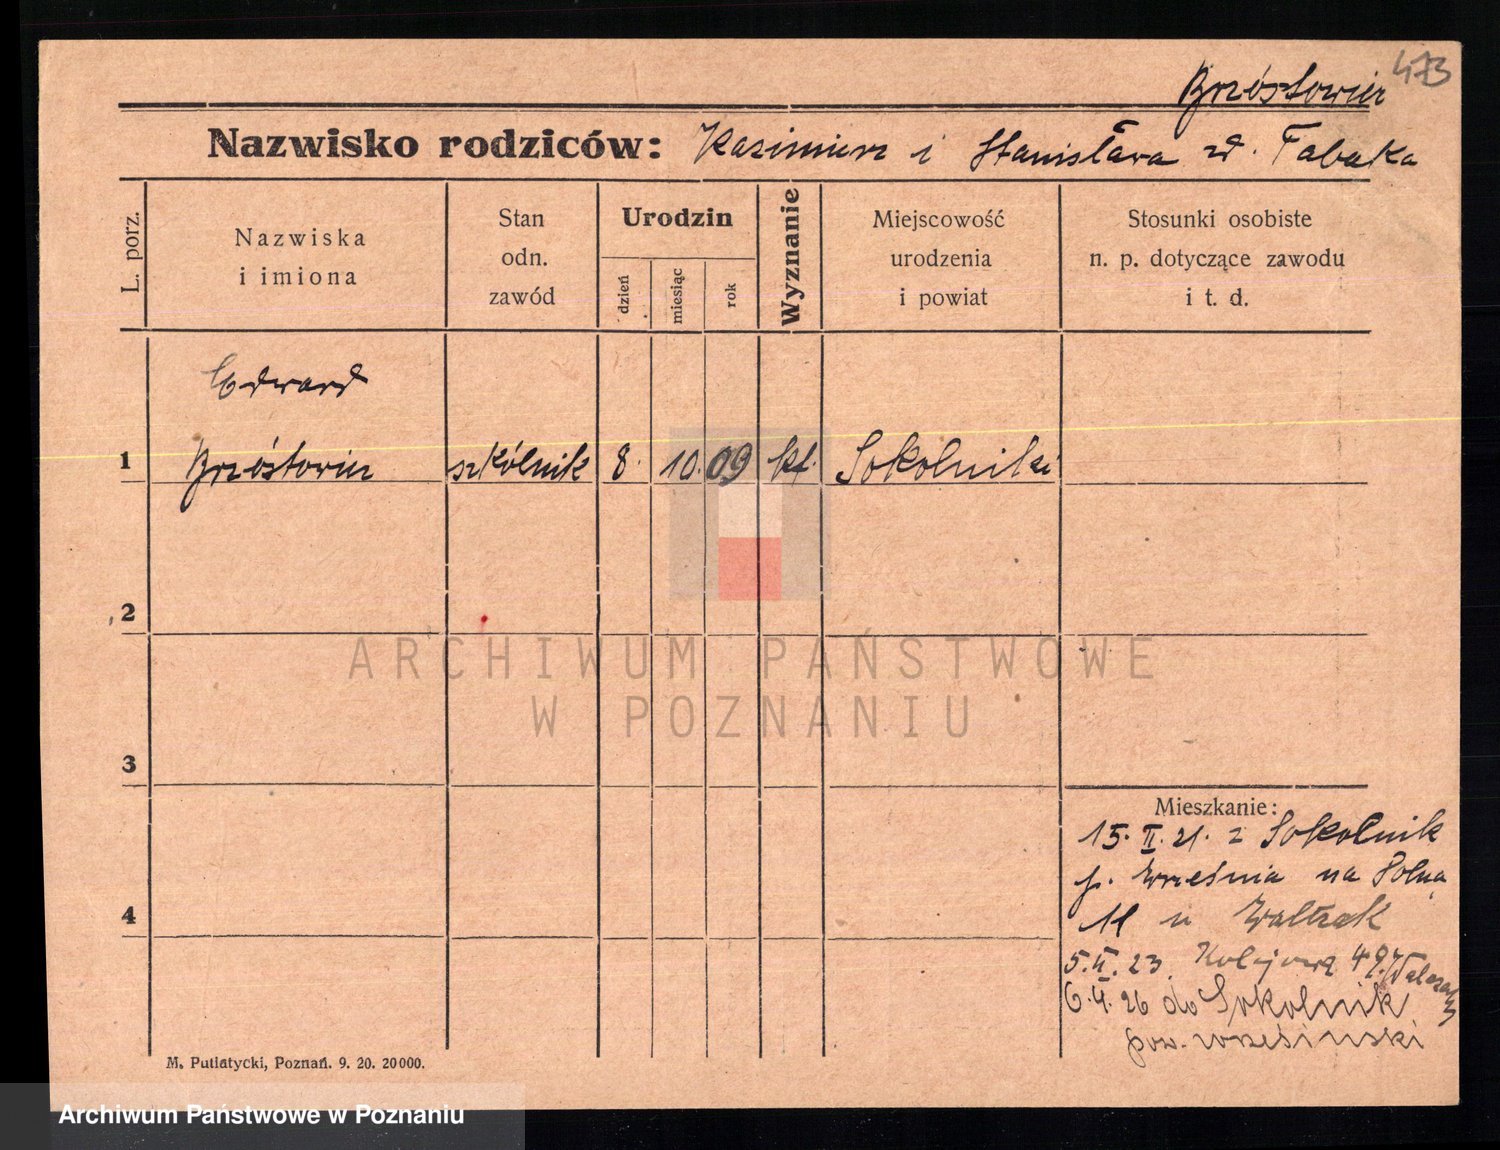 473
Brzóstowicz
Nazwisko rodziców: Kazimierz i Stanisława zd. Tabaka
L. porz.
Nazwiska
i imiona
Stan
odn.
zawód
Urodzin
dzień
miesiąc
rok
Wyznanie
Miejscowość
urodzenia
i powiat
Stosunki osobiste
n. p. dotyczące zawodu
i t. d.
Edward
1 Brzóstowicz szkólnik 8. 10. 09 kt. Sokolniki
2
3
4
Mieszkanie:
15. II. 21. z Sokolnik
p. Września na Polną
11 u
5. II. 23. Kolejową 49
6. 4. 26 do Sokolnik
pow. wrzesiński
M. Putiatycki, Poznań. 9. 20. 20000.
ARCHIWUM PAŃSTWOWE
W POZNANIU
Archiwum Państwowe w Poznaniu